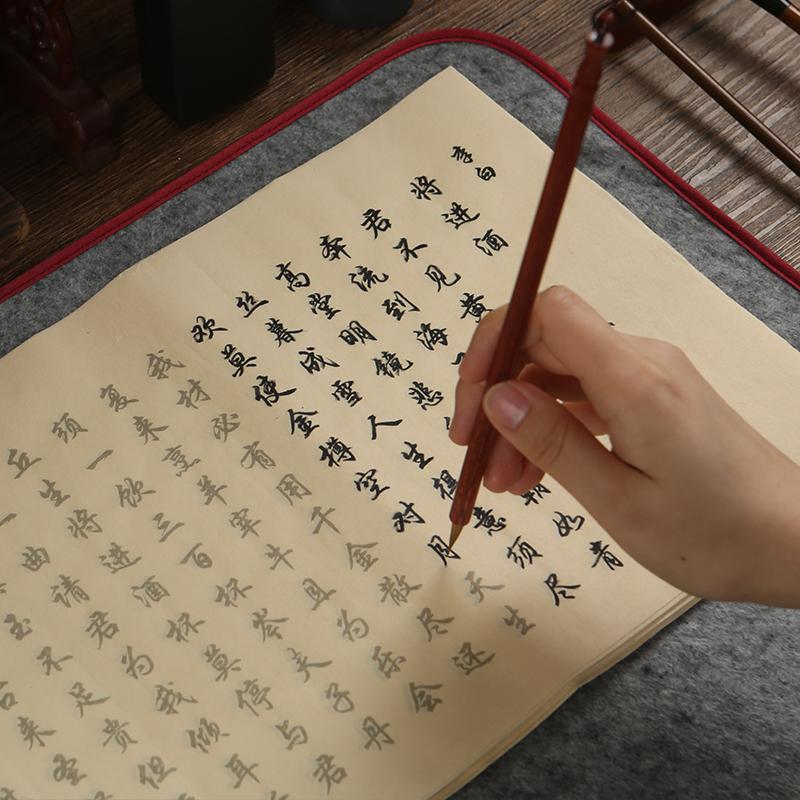 将进酒
李白
君不见黄
奔流到海
高堂明镜悲朝如青
丝暮成雪人生得意须尽
欢莫使金樽空对月天生
我材必有用千金散尽还
复来烹羊宰牛且为乐会
须一饮三百杯岑夫子丹
丘生将进酒杯莫停与君
一曲请君为我倾耳
玉不足贵但
来圣